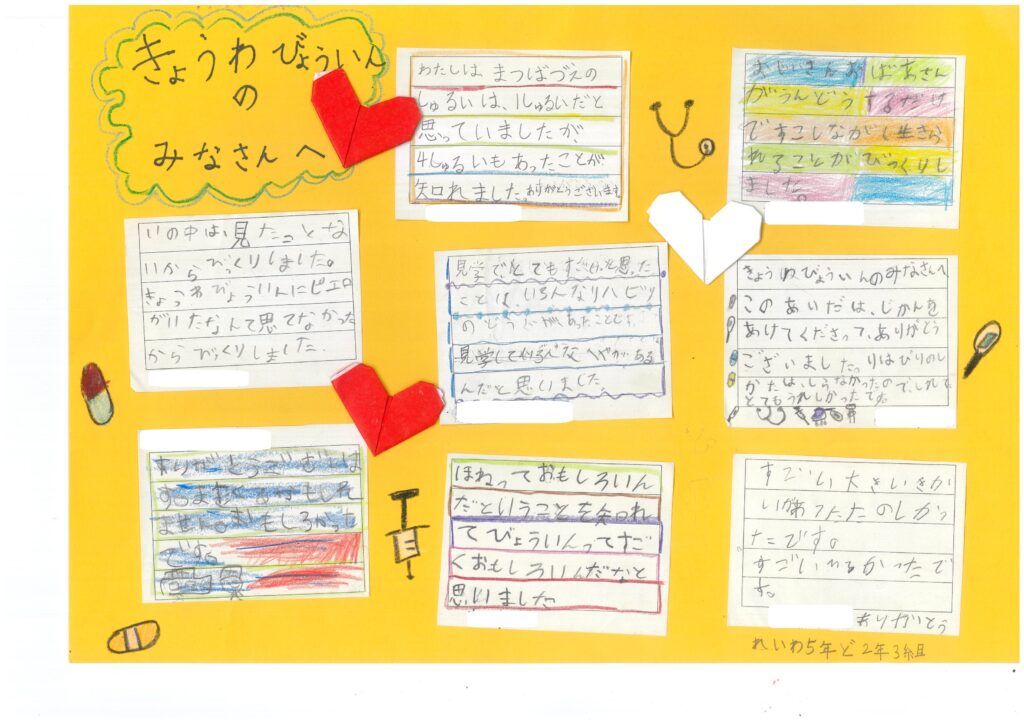 きょうわびょういん
の
みなさんへ
わたしは まつばづえの
しゅるいは、1しゅるいだと
思っていましたが、
4しゅるいもあったことが
知れました。ありがとうございます
おじいさんおばあさん
がうんどうするだけ
ですこしながく生きら
れることがびっくりし
ました。
いの中は、見たことな
いからびっくりしました。
きょうわびょういんにピエロ
がいたなんて思てなかった
からびっくりしました.
見学でとてもすごいと思った
ことは、いろんなリハビリ
のどうぐがあったことです。
見学して
んだと思いました。
きょうわびょういんのみなさんへ
このあいだは、じかんを
あけてくださって、ありがとう
ございました。りはびりのし
かたは、しらなかったのでしれて
とてもうれしかったです。
ません。おもしろかった
です。
ほねっておもしろいん
だということを知れ
てびょういんってすご
くおもしろいんだなと
思いました
すごい大きいきか
いがあってたのしかっ
たです。
すごい
す。
ありがとう
れいわ5年ど2年3組